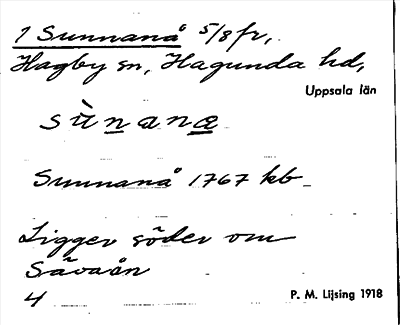 1 Sunnanå 5/8 fr,
Hagby sn, Hagunda hd,
Uppsala län
sùnana
Sunnanå 1767 kb
Ligger söder om
Sävaån
4
P. M. Lijsing 1918